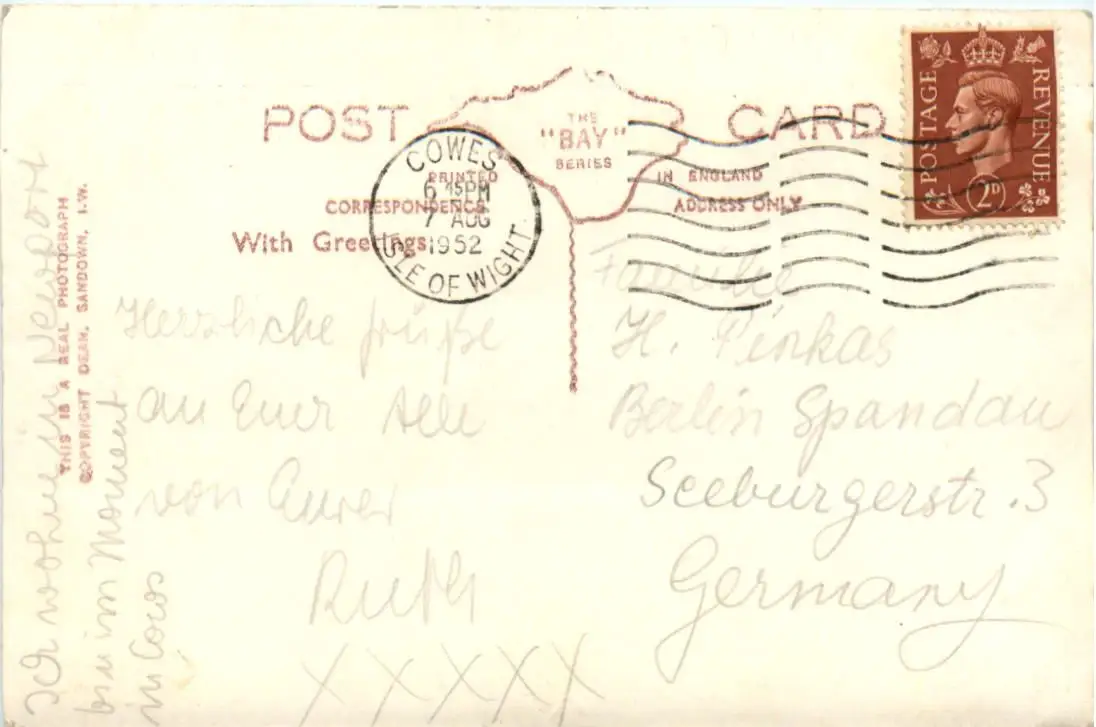 POST CARD
THE
"BAY"
SERIES
PRINTED IN ENGLAND
CORRESPONDENCE ADDRESS ONLY
With Greetings
COWES
6 15PM
7 AUG
1952
ISLE OF WIGHT
POSTAGE REVENUE
2D
Herzliche Grüße
an Euer Alle
von Eurer
Ruth
XXXXX
Familie
H. Pinkas
Berlin Spandau
Seeburgerstr. 3
Germany
Ich wohne in Newport
bin im Moment
in Cows
THIS IS A REAL PHOTOGRAPH
COPYRIGHT DEAN, SANDOWN, I.W.